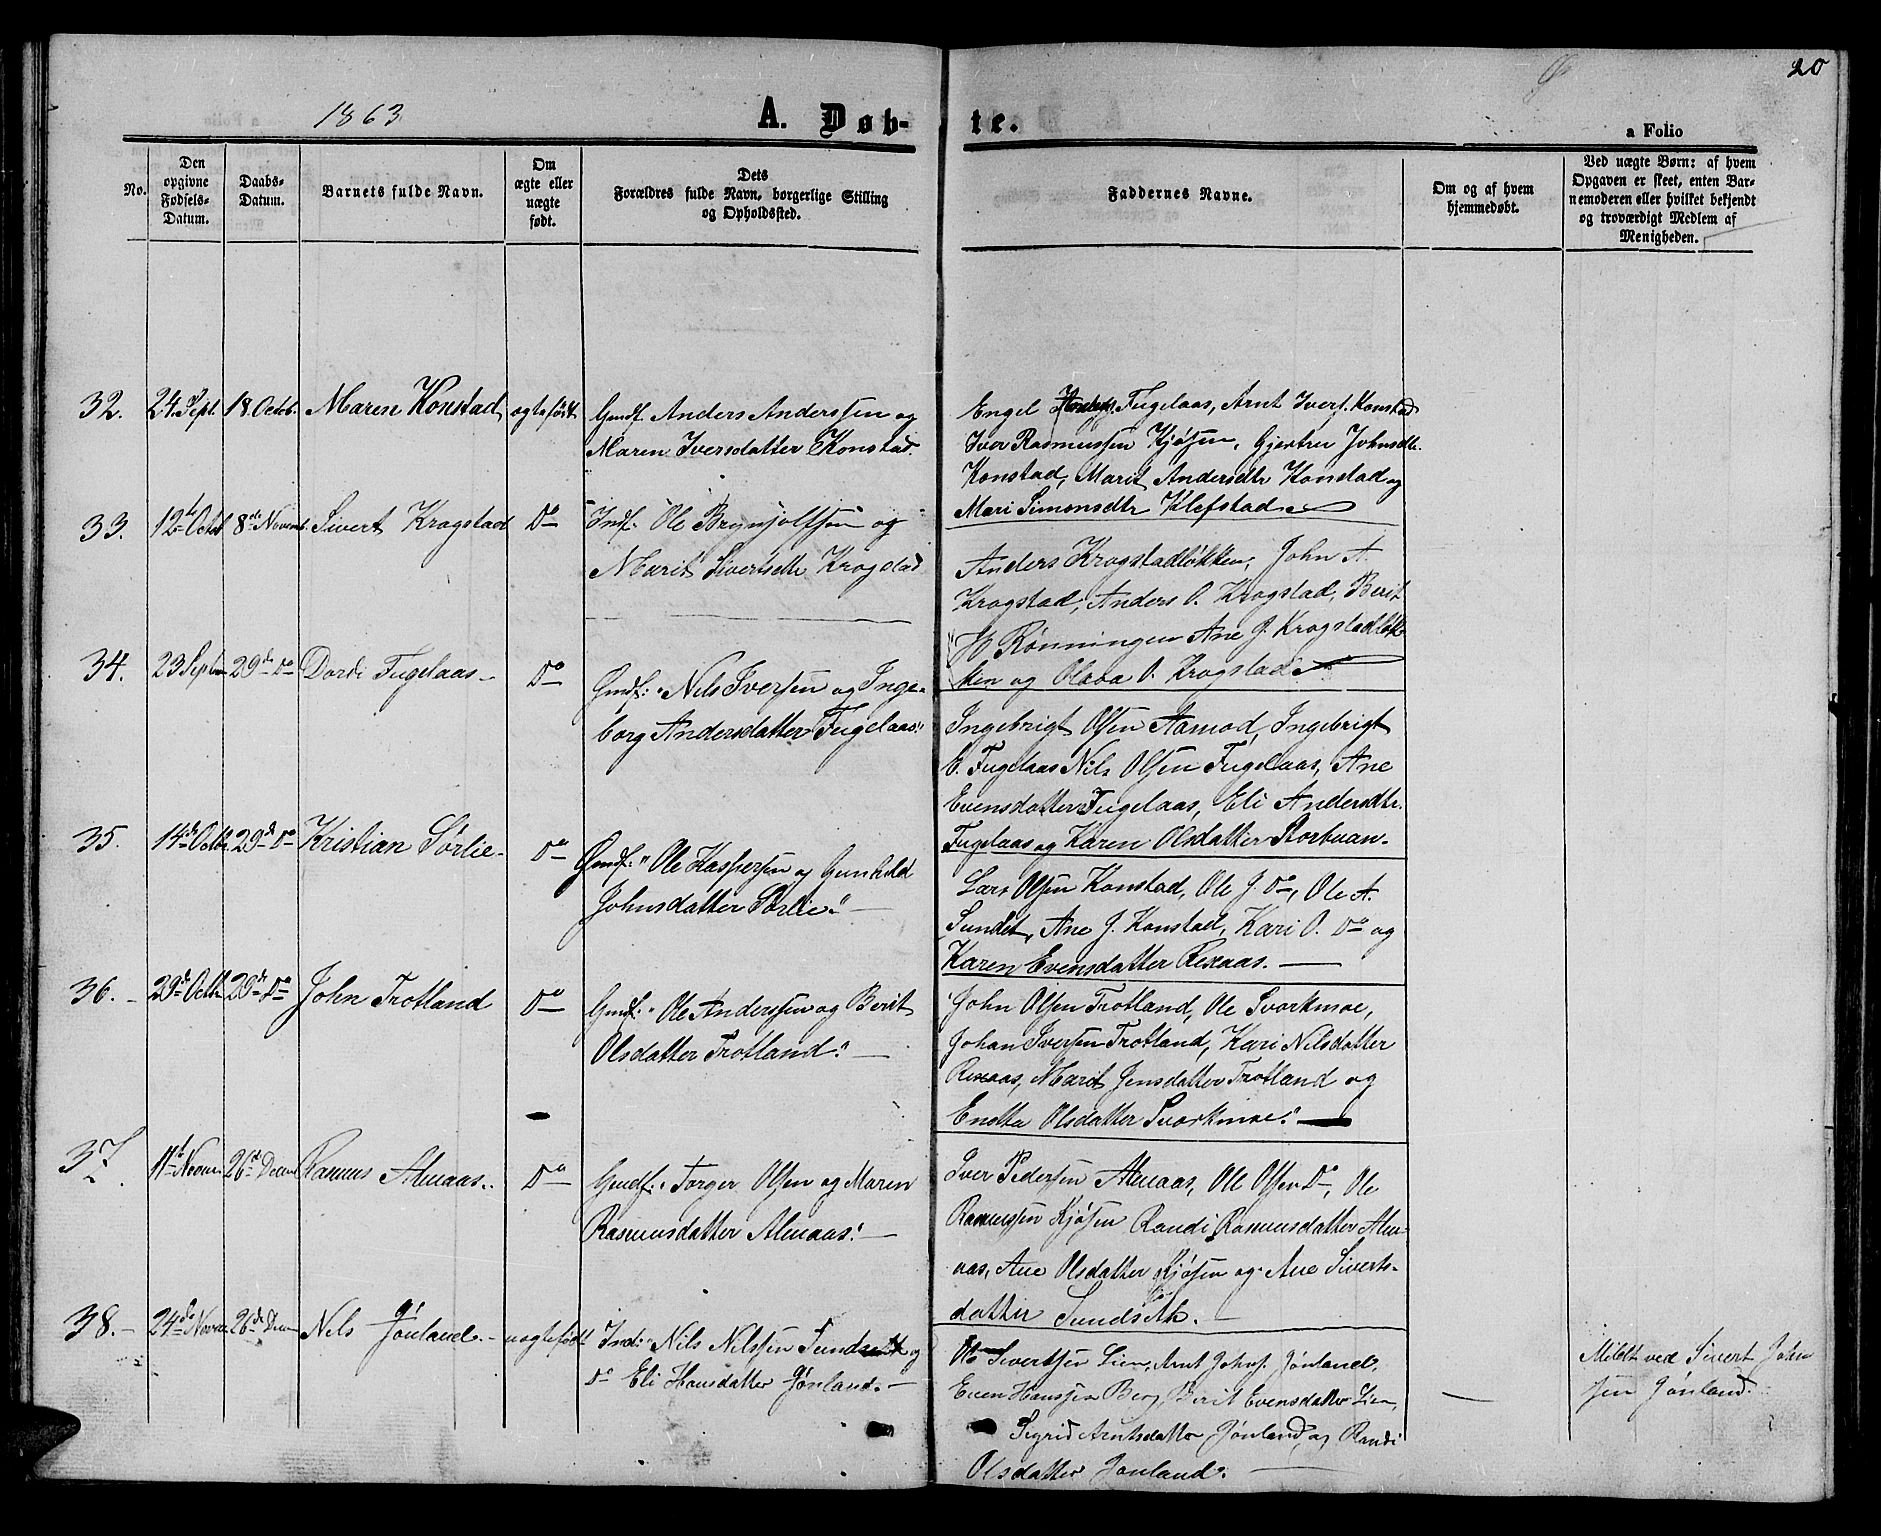 20
1863 A. Døb- te.
a Folio
No.
Den opgivne Fødsels-Datum.
Daabs-Datum.
Barnets fulde Navn.
Om ægte eller uægte født.
Dets Forældres fulde Navn, borgerlige Stilling og Opholdssted.
Faddernes Navne.
Om og af hvem hjemmedøbt.
Ved uægte Børn: af hvem Opgaven er skeet, enten Barnemoderen eller hvilket bekjendt og troværdigt Medlem af Menigheden.
32. 24 Sept. 18. Octob. Maren Konstad ægtefødt Gmdf. Anders Anderssen og
Maren Iversdatter Konstad.
Engel Fugelaas, Arnt Ivers. Konstad
Iver Rasmussen Kjøsen, Gjertru Johnsdtr.
Konstad, Marit Andersdtr Konstad og
Mari Simonsdtr Klefstad.
33. 12te Octob 8de Novemb. Sivert Krogstad Do Indf. Ole Brynjolfsen og
Marit Sivertsdtr Krogstad
Anders Krogstadløkken, John A.
Krogstad, Anders O. Krogstad, Berit
H Rønningen Ane J. Krogstadløk
ken og Olava O. Krogstad.
34. 23 Septbr 29de Do Dordi Fugelaas Do Gmdf: Nils Iversen og Inge-
borg Andersdatter Fugelaas.
Ingebrigt Olsen Aamod, Ingebrigt
E. Fugelaas Nils Olsen Fugelaas, Ane
Evensdatter Fugelaas, Eli Andersdtr.
Fugelaas og Karen Olsdatter Storbuan.
35. 14de Octbr 29de Do Kristian Sørlie Do Gmdf: Ole Kaspersen og Gunhild
Johnsdatter Sørlie.
Lars Olsen Konstad, Ole J. Do, Ole A.
Sundet, Ane J. Konstad, Kari O. Do og
Karen Evensdatter Rexaas.
36. 29de Octbr 29de Do John Trotland Do Gmdf: Ole Anderssen og Berit
Olsdatter Trotland.
John Olsen Trotland, Ole Svorkmoe,
Johan Iversen Trotland, Kari Nilsdatter
Rexaas, Marit Jensdatter Trotland og
Endta Olsdatter Svorkmoe.
37. 11te Novem 26de Decm Rasmus Almaas. Do Gmdf. Torger Olsen og Maren
Rasmusdatter Almaas.
Iver Pedersen Almaas, Ole Olsen Do, Ole
Rasmussen Kjøsen Randi Rasmusdatter Alm-
aas, Ane Olsdatter Kjøsen og Ane Siverts-
datter Sundseth.
38. 24de Novbr 26de Decm Nils Jønland. uægtefødt Ind: Nils Nilssen Sundseth og
Do Eli Hansdatter Jønland.
Ole Sivertsen Lien, Arnt Johns. Jønland,
Even Hanssen Berg, Berit Evensdatter Lien,
Sigrid Arntsdatter Jønland, og Randi
Olsdatter Jønland.
Meldt ved Sivert John
sen Jønland.